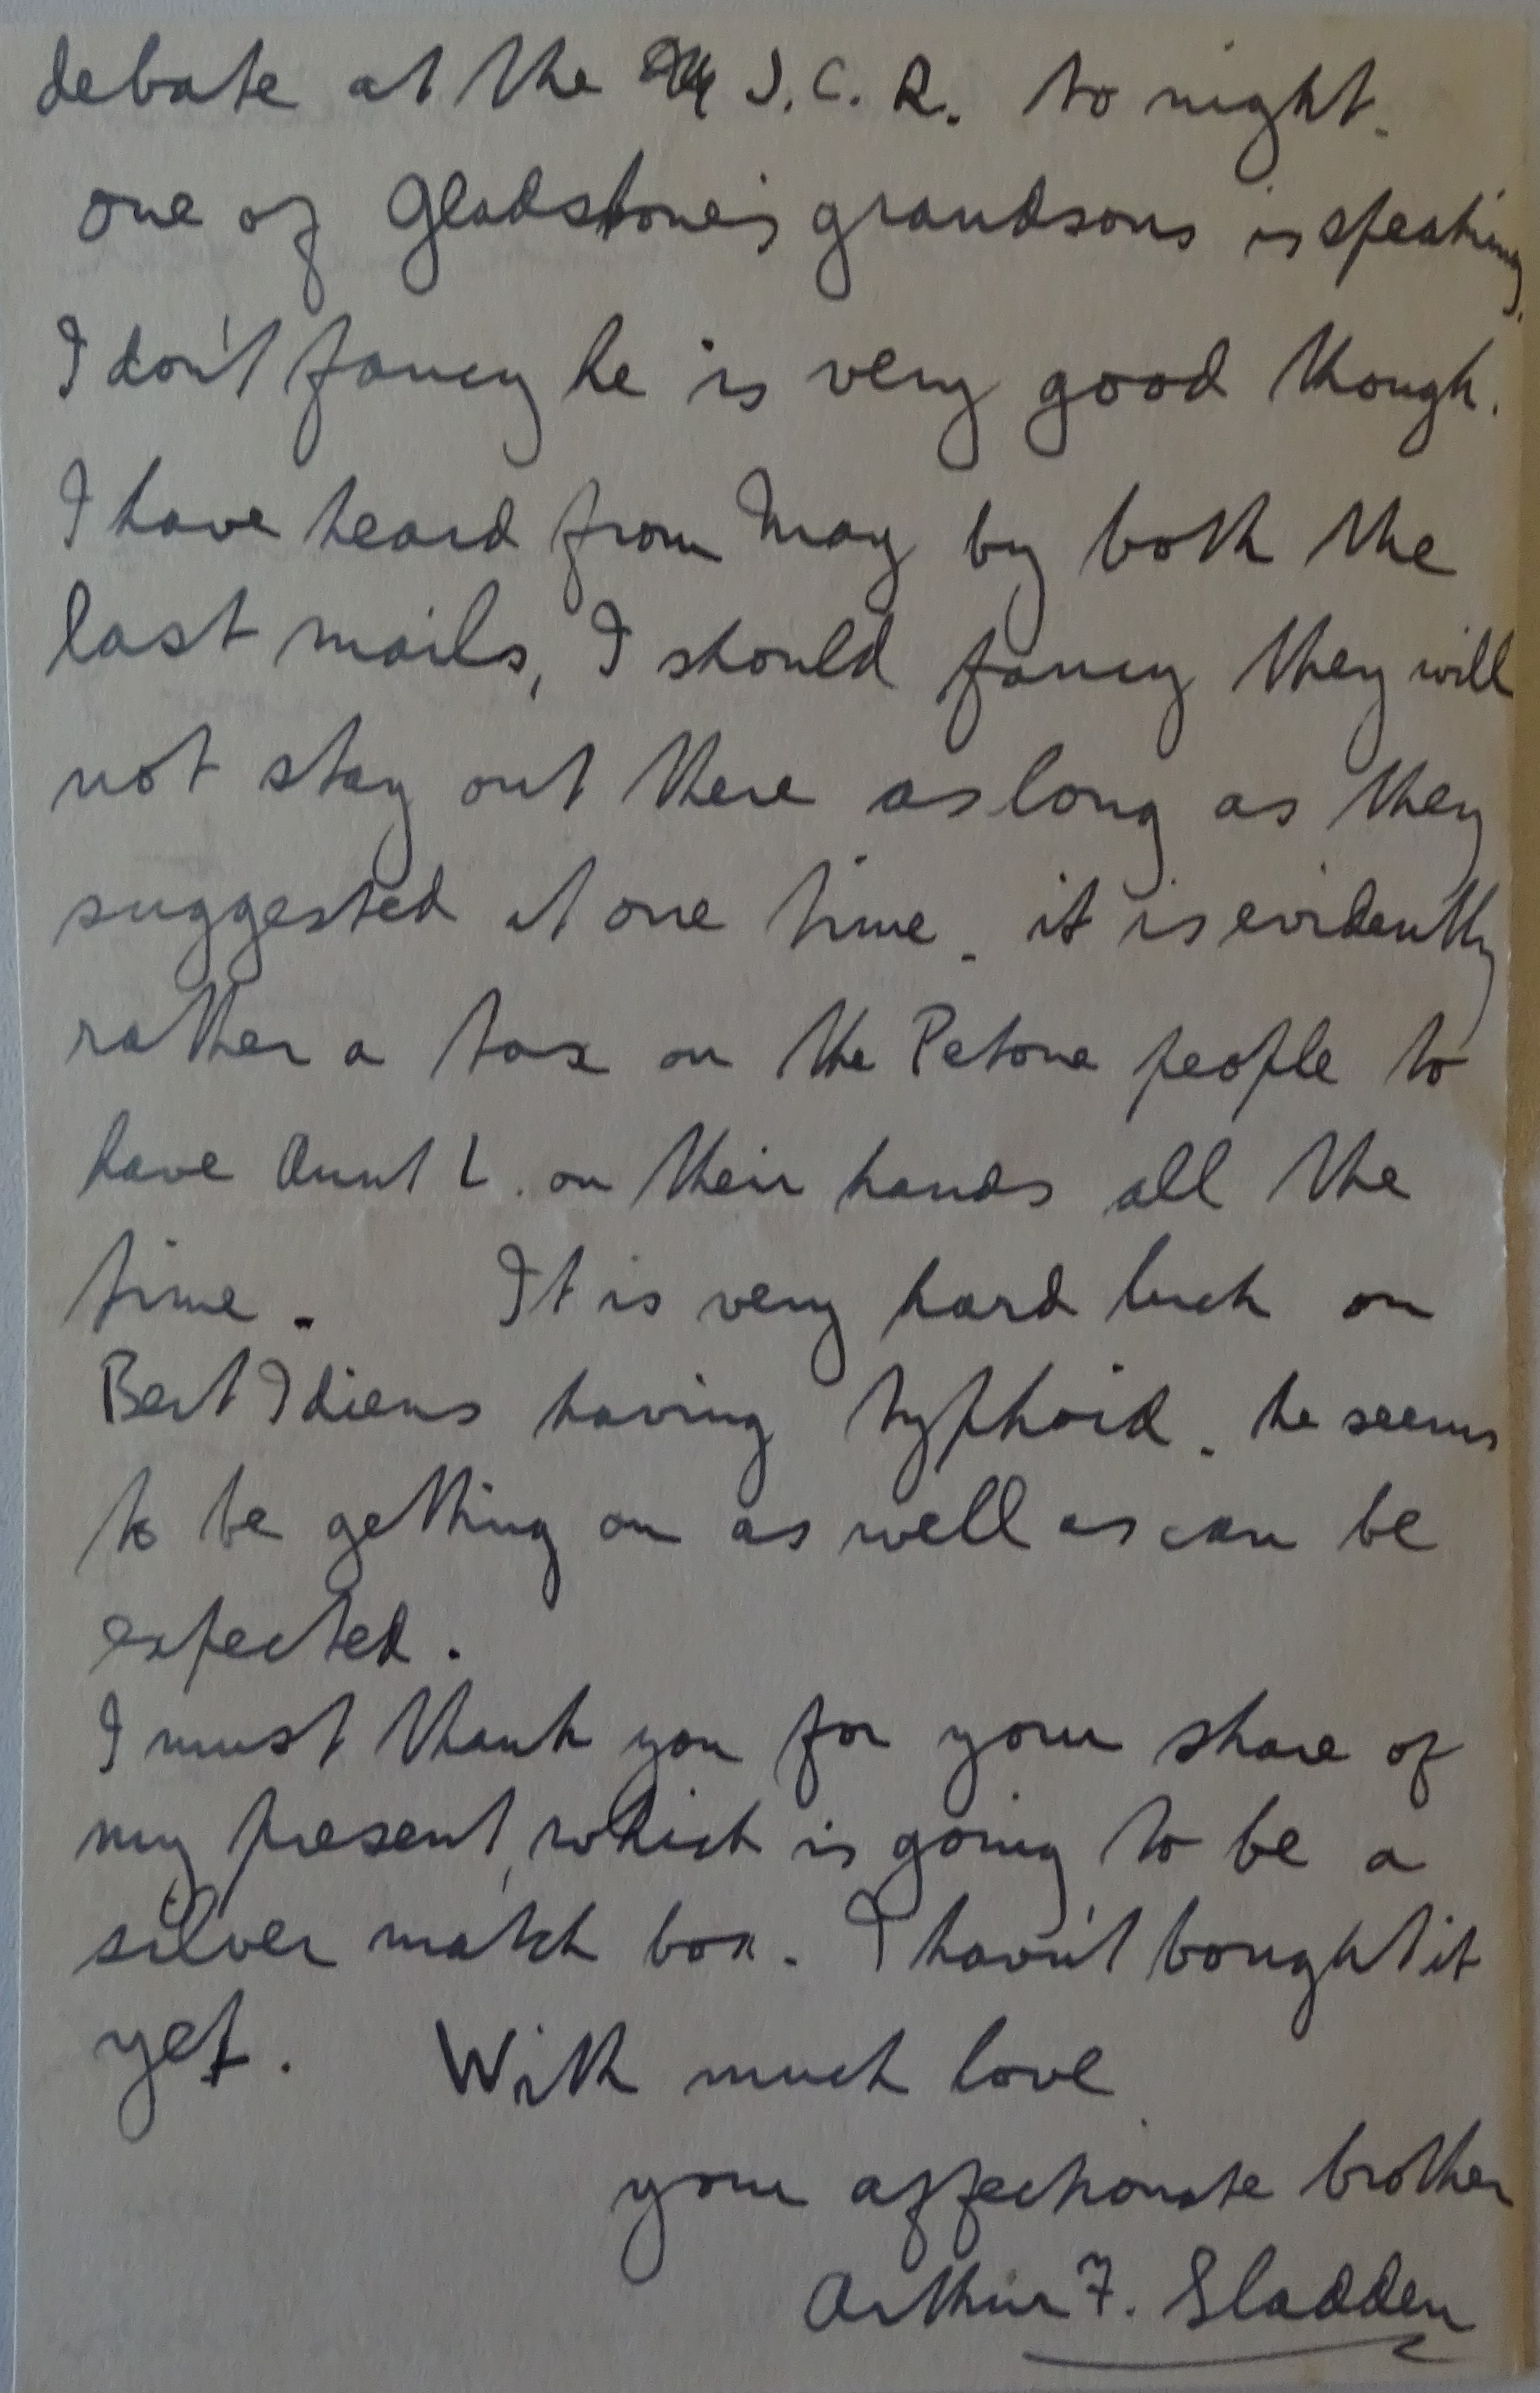 debate at the J. C. R. to night.
one of Gladstone's grandsons is speaking.
I don't fancy he is very good though.
I have heard from May by both the
last mails, I should fancy they will
not stay out there as long as they
suggested at one time. it is evidently
rather a tax on the Petone people to
have Aunt L. on their hands all the
time. It is very hard luck on
Bert Idiens having typhoid. he seems
to be getting on as well as can be
expected.
I must thank you for your share of
my present, which is going to be a
silver match box. I havn't bought it
yet. With much love
your affectionate brother
Arthur F. Sladden